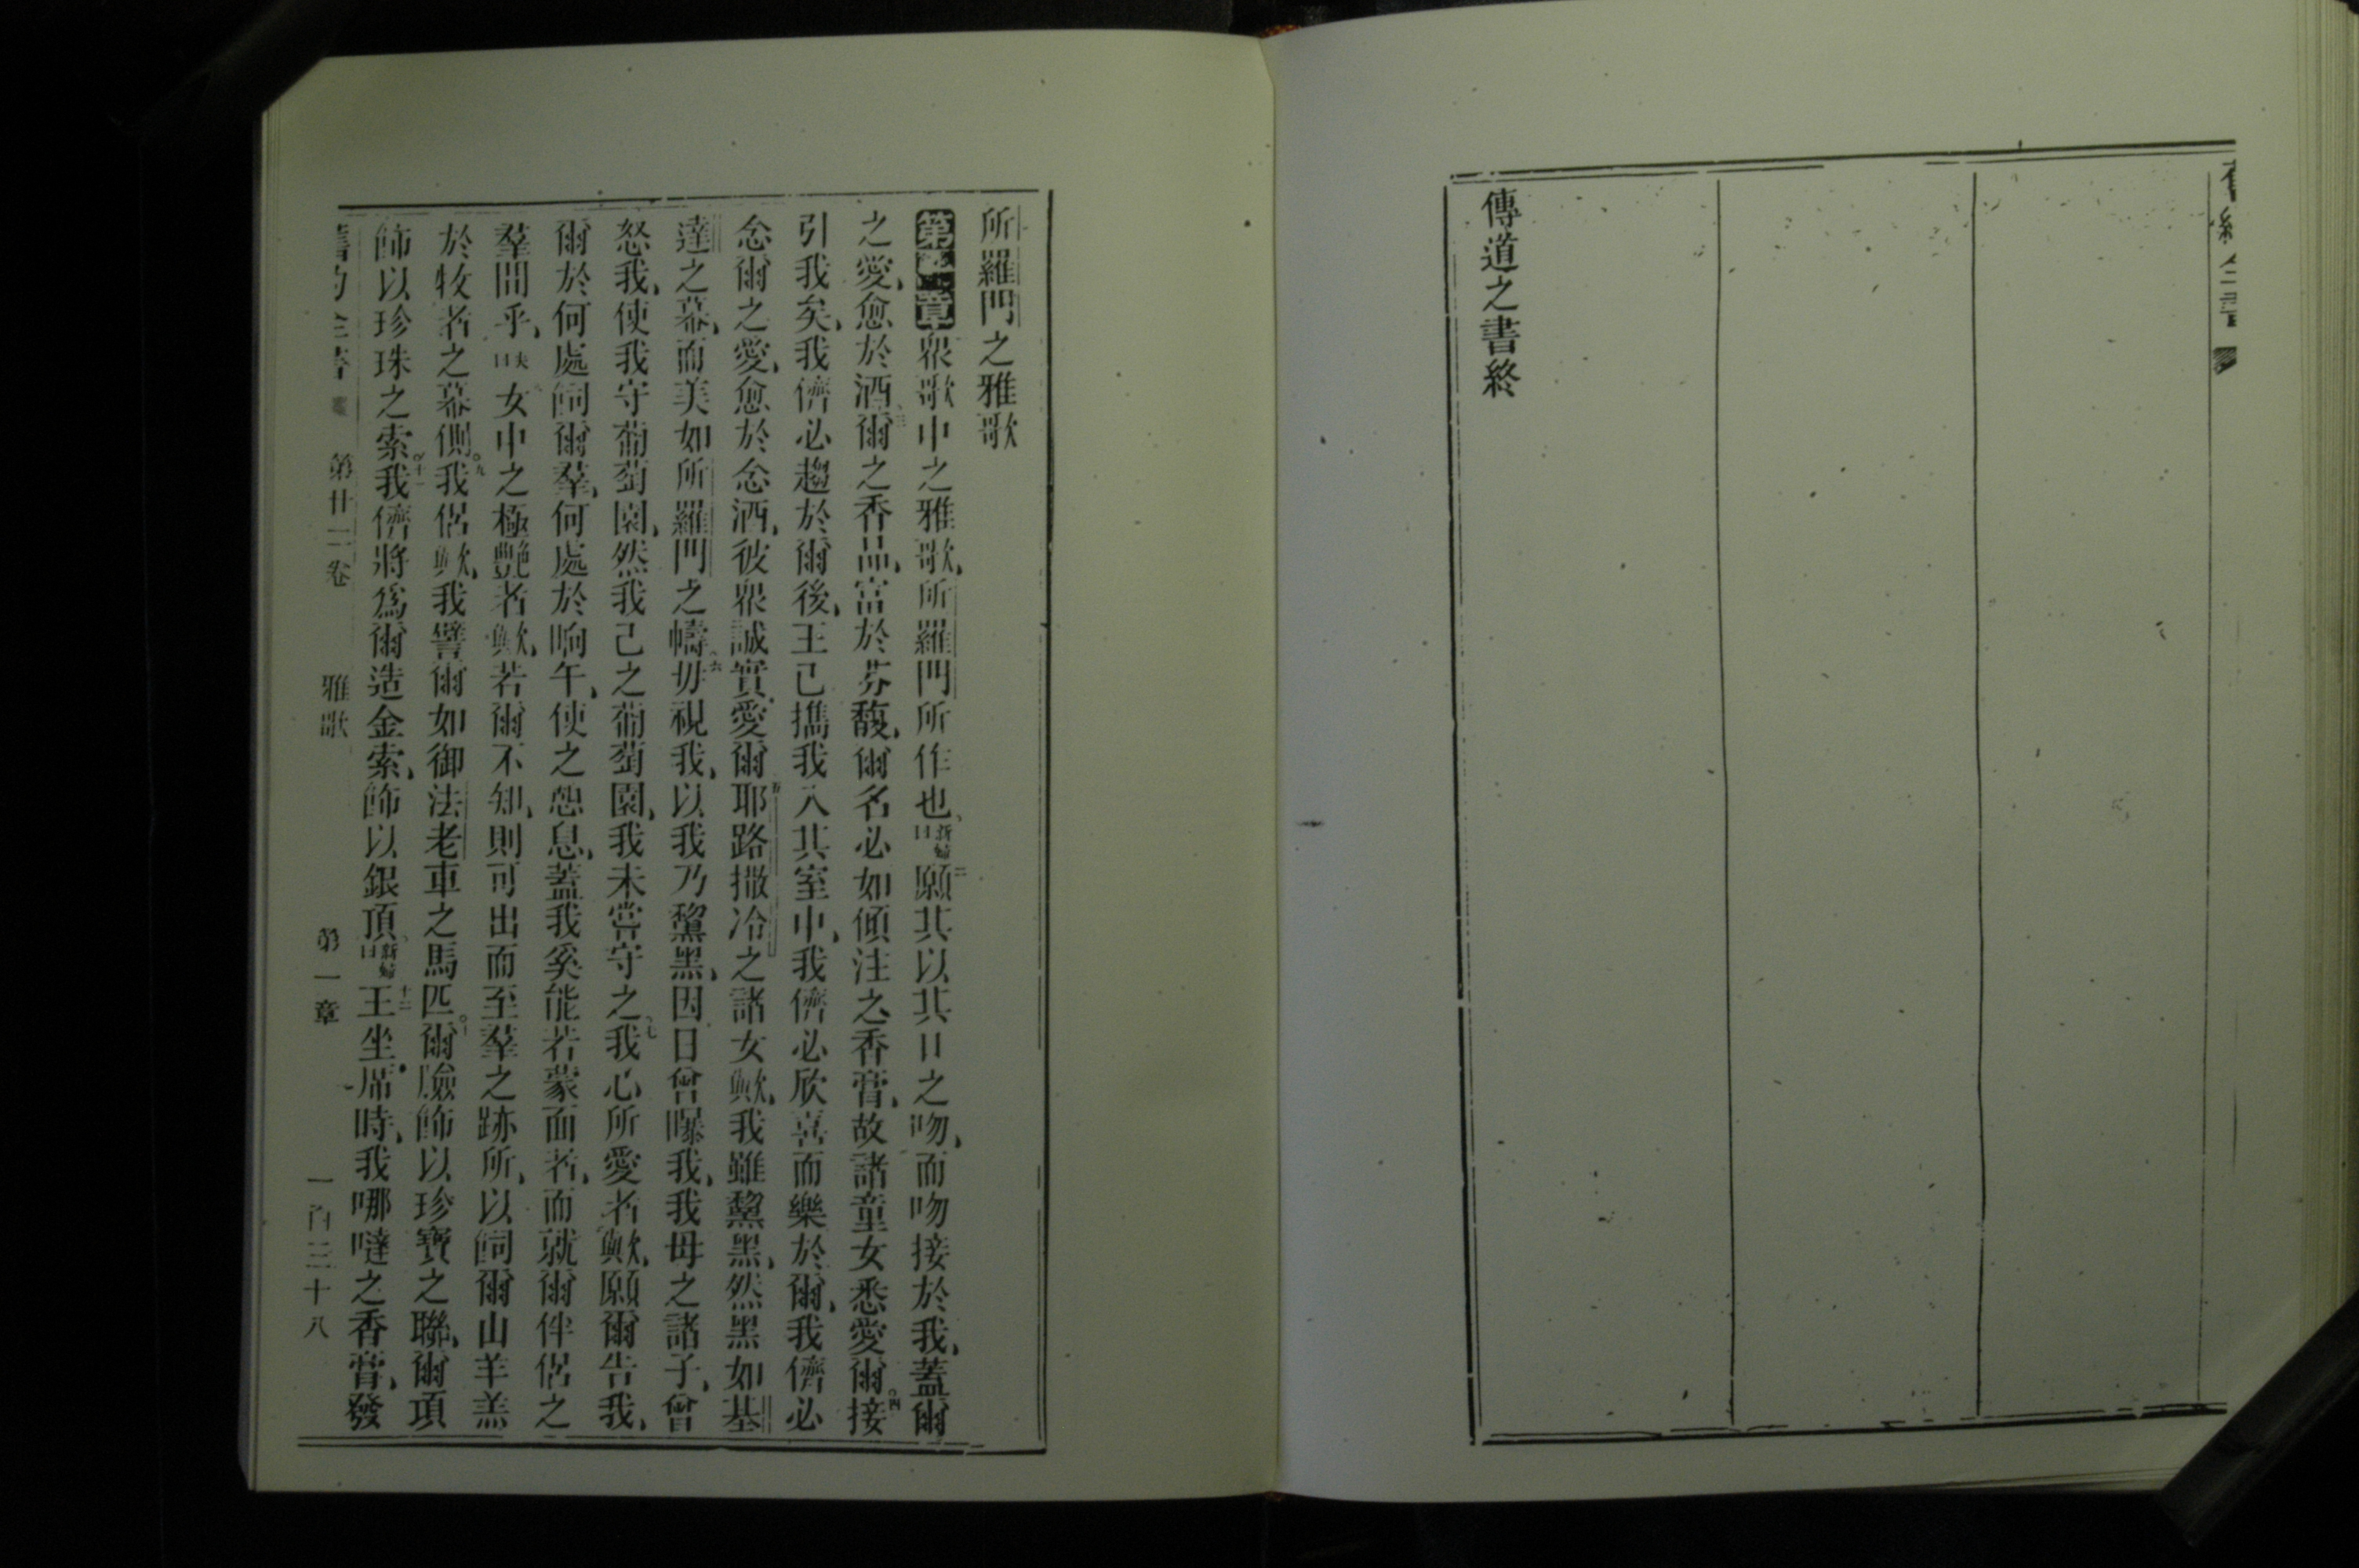 傳道之書終
所羅門之雅歌
第一章眾歌中之雅歌、所羅門所作也、新婦曰二願其以其口之吻、而吻接於我、蓋爾
之愛、愈於酒、三爾之香品、富於芬馥、爾名必如傾注之香膏、故諸童女悉愛爾。四接
引我矣、我儕必趨於爾後、王已擕我入其室中、我儕必欣喜而樂於爾、我儕必
念爾之愛、愈於念酒、彼眾誠實愛爾、五耶路撒冷之諸女歟、我雖黧黑、然黑如基
達之幕、而美如所羅門之幬。六毋視我、以我乃黧黑、因日曾曝我、我母之諸子、曾
怒我、使我守葡萄園、然我己之葡萄園、我未嘗守之、七我心所愛者歟、願爾告我、
爾於何處飼爾羣、何處於晌午、使之憩息、蓋我奚能若蒙面者、而就爾伴侶之
羣間乎、夫曰八女中之極艷者歟、若爾不知、則可出而至羣之跡所、以飼爾山羊羔
於牧者之幕側。九我侶歟、我譬爾如御法老車之馬匹。十爾臉飾以珍寶之聯、爾項
飾以珍珠之索。十一我儕將為爾造金索、飾以銀頂、新婦曰十二王坐席時、我哪噠之香膏、發
舊約全書 第廿二卷 雅歌 第一章 一百三十八